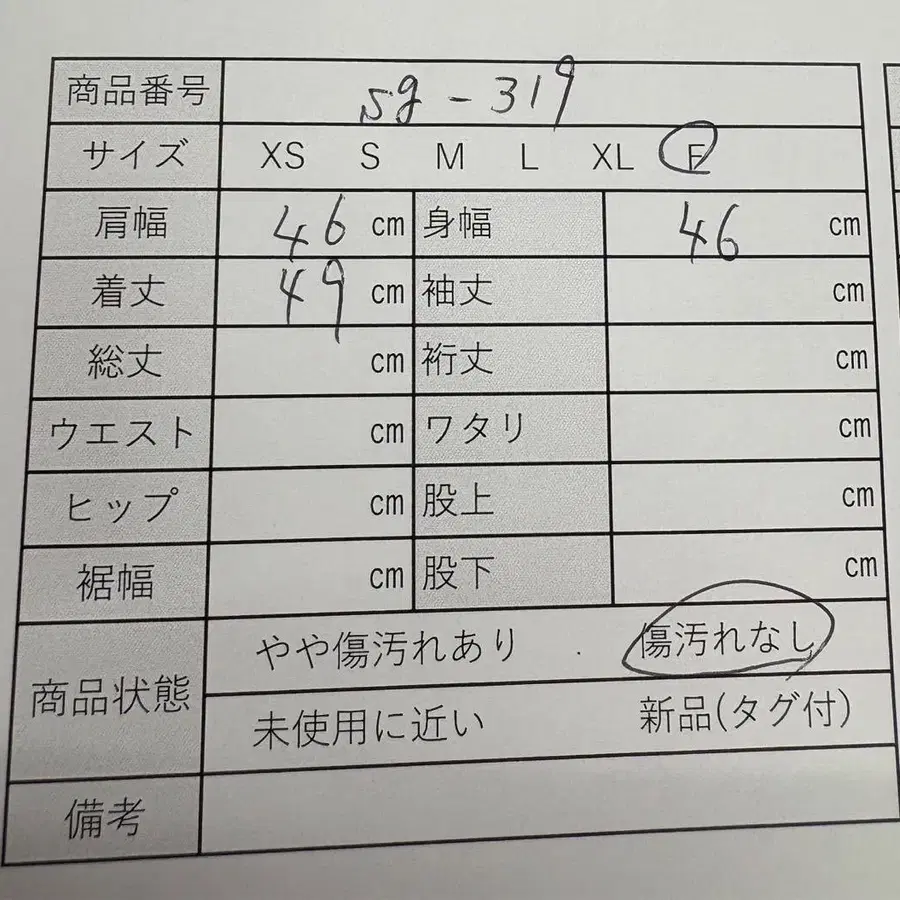 商品番号 sg-319
サイズ XS S M L XL F
肩幅 46 cm 身幅 46 cm
着丈 49 cm 袖丈 cm
総丈 cm 裄丈 cm
ウエスト cm ワタリ cm
ヒップ cm 股上 cm
裾幅 cm 股下 cm
商品状態 やや傷汚れあり 傷汚れなし
未使用に近い 新品(タグ付)
備考